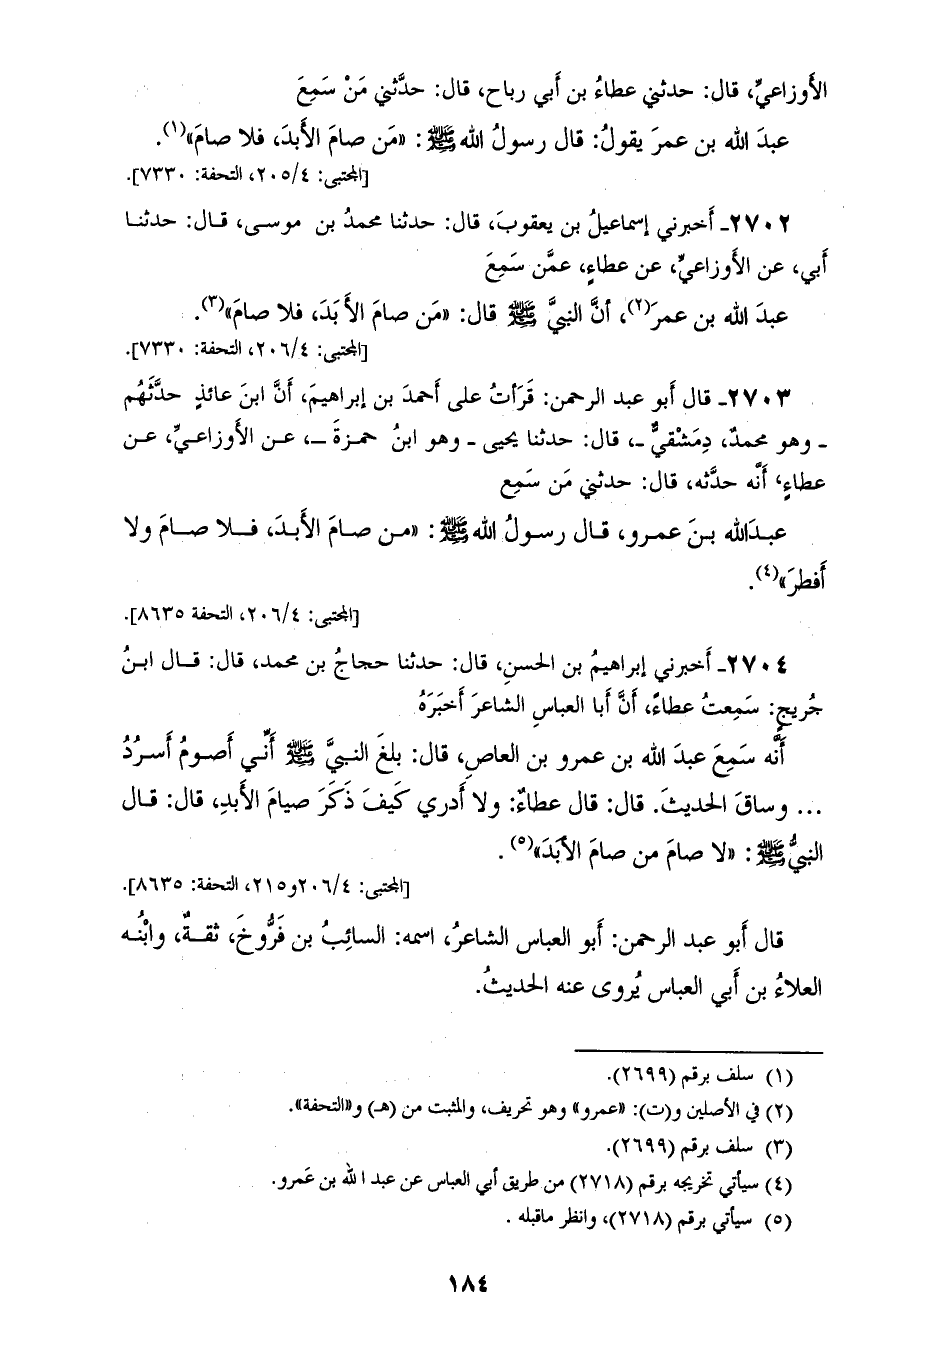 الأَوزاعيِّ، قال: حدثني عطاءُ بن أَبي رباح، قال: حدَّثني مَنْ سَمِعَ
عبدَ الله بن عمرَ يقولُ: قال رسولُ الله ﷺ: «مَن صامَ الأَبدَ، فلا صامَ»(١).
[المجتبى: ٢٠٥/٤، التحفة: ٧٣٣٠].
٢٧٠٢ـ أَخبرني إسماعيلُ بن يعقوبَ، قال: حدثنا محمدُ بن موسى، قال: حدثنا
أَبي، عن الأَوزاعيِّ، عن عطاءٍ، عمَّن سَمِعَ
عبدَ الله بن عمرَ(٢)، أنَّ النبيَّ ﷺ قال: «مَن صامَ الأَبَدَ، فلا صامَ»(٣).
[المجتبى: ٢٠٦/٤، التحفة: ٧٣٣٠].
٢٧٠٣ـ قال أَبو عبد الرحمن: قَرَأتُ على أَحمدَ بن إبراهيمَ، أَنَّ ابنَ عائذٍ حدَّثَهُم
ـ وهو محمدٌ، دِمَشْقيٌّ ـ، قال: حدثنا يحيى ـ وهو ابنُ حمزةَ ـ، عن الأَوزاعيِّ، عن
عطاءٍ، أَنَّه حدَّثه، قال: حدثني مَن سَمِع
عبدَالله بنَ عمرو، قال رسولُ الله ﷺ: «مـن صامَ الأَبدَ، فلا صامَ ولا
أَفطرَ»(٤).
[المجتبى: ٢٠٦/٤، التحفة ٨٦٣٥].
٢٧٠٤ـ أَخبرني إبراهيمُ بن الحسنِ، قال: حدثنا حجاجُ بن محمد، قال: قال ابنُ
جُريجٍ: سَمِعتُ عطاءً، أَنَّ أَبا العباسِ الشاعرَ أَخبَرَهُ
أَنَّه سَمِعَ عبدَ الله بن عمرو بن العاصِ، قال: بلغَ النبيَّ ﷺ أَنِّي أَصومُ أَسرُدُ
... وساقَ الحديثَ. قال: قال عطاءٌ: ولا أَدري كَيفَ ذَكَرَ صيامَ الأَبدِ، قال: قال
النبيُّ ﷺ: «لا صامَ من صامَ الأَبَدَ»(٥).
[المجتبى: ٢٠٦/٤و٢١٥، التحفة: ٨٦٣٥].
قال أَبو عبد الرحمن: أَبو العباس الشاعرُ، اسمه: السائِبُ بن فَرُّوخَ، ثقةٌ، وابْنُه
العلاءُ بن أَبي العباس يُروى عنه الحديثُ.
(١) سلف برقم (٢٦٩٩).
(٢) في الأصلين و(ت): «عمرو» وهو تحريف، والمثبت من (هـ) و«التحفة».
(٣) سلف برقم (٢٦٩٩).
(٤) سيأتي تخريجه برقم (٢٧١٨) من طريق أبي العباس عن عبد الله بن عَمرو.
(٥) سيأتي برقم (٢٧١٨)، وانظر ماقبله.
١٨٤